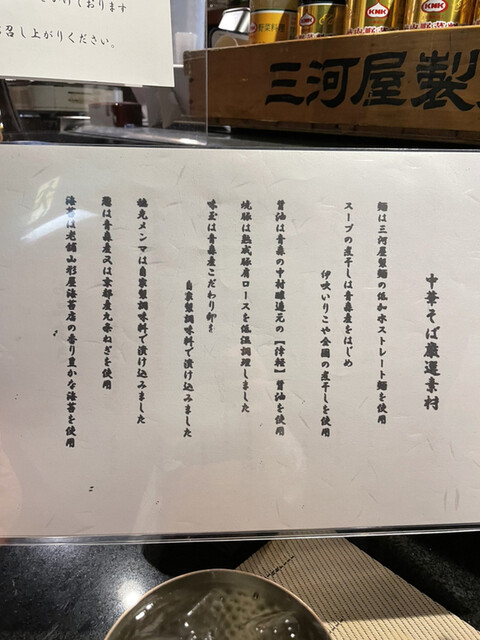 ております
召し上がりください。
KNK
KNK
KNK
三河屋製
中華そば厳選素材
麺は三河屋製麺の低加水ストレート麺を使用
スープの煮干しは青森産をはじめ
伊吹いりこや全国の煮干しを使用
醤油は青森の中村醸造元の【津軽】醤油を使用
焼豚は熟成豚肩ロースを低温調理しました
味玉は青森産こだわり卵を
自家製調味料で漬け込みました
穂先メンマは自家製調味料で漬け込みました
葱は青森産又は京都産九条ねぎを使用
海苔は老舗山形屋海苔店の香り豊かな海苔を使用